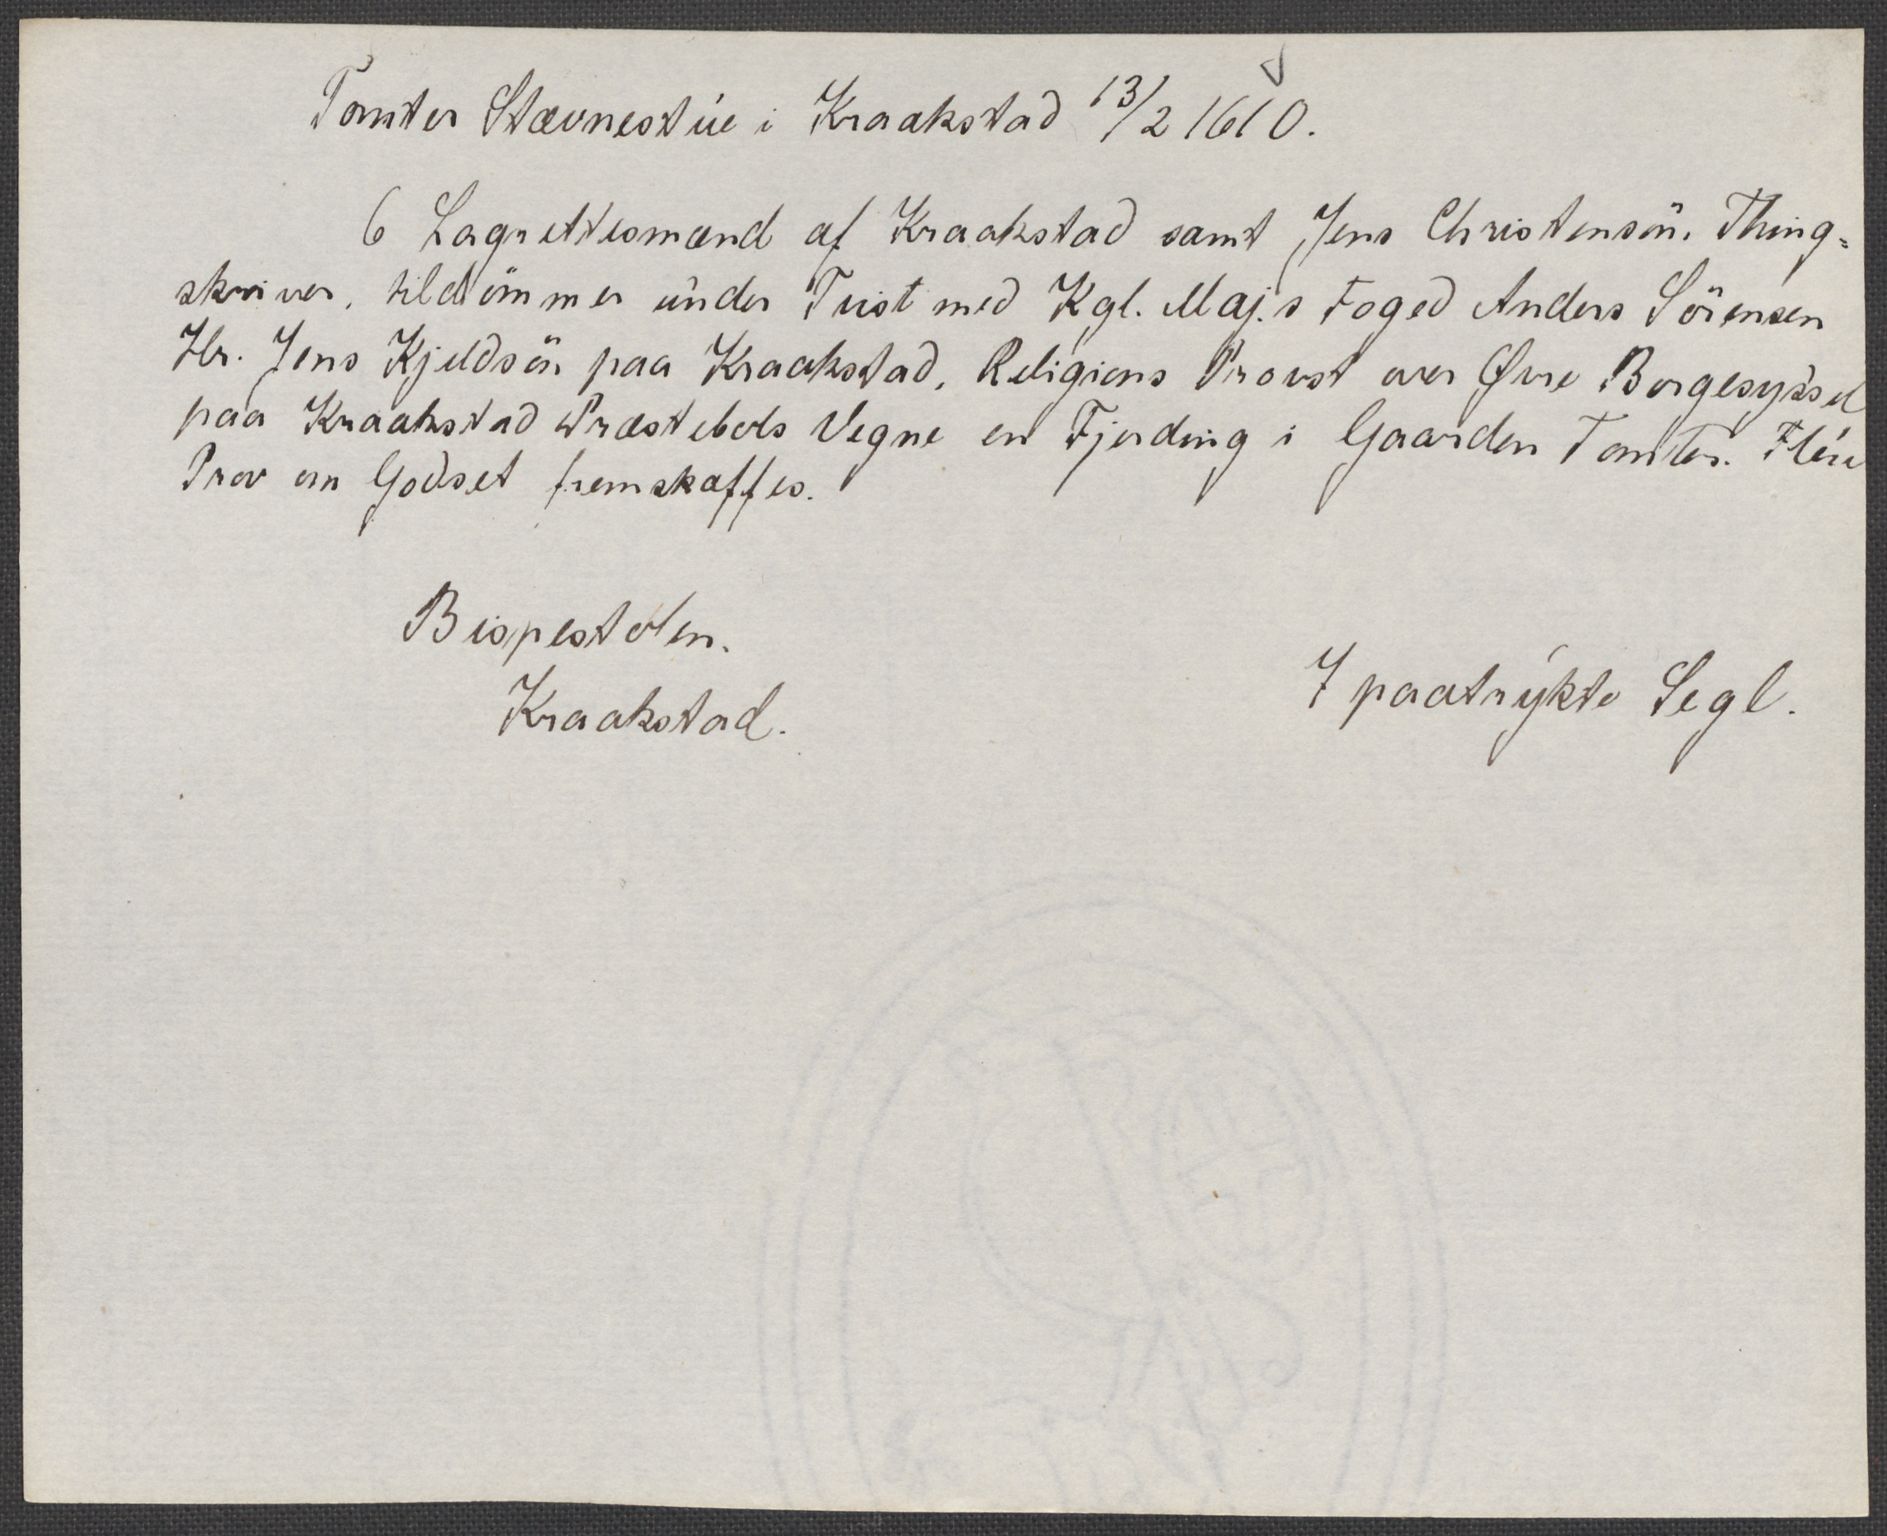 Tomter Stævnestue i Kraakstad 13/2 1610.
6 Lagrettesmænd af Kraakstad samt Jens Christensön, Thing=
skriver, tildömmer under Tvist med Kgl. Maj.s Foged Anders Sörensen
Hr. Jens Kjeldsön paa Kraakstad, Religions Provst over Øvre Borgesyssel
paa Kraakstad Præstebols Vegne en Fjerding i Gaarden Tomter. Flere
Prov om Godset fremskaffes.
Bispestolen.
Kraakstad.
7 paatrykte Segl.